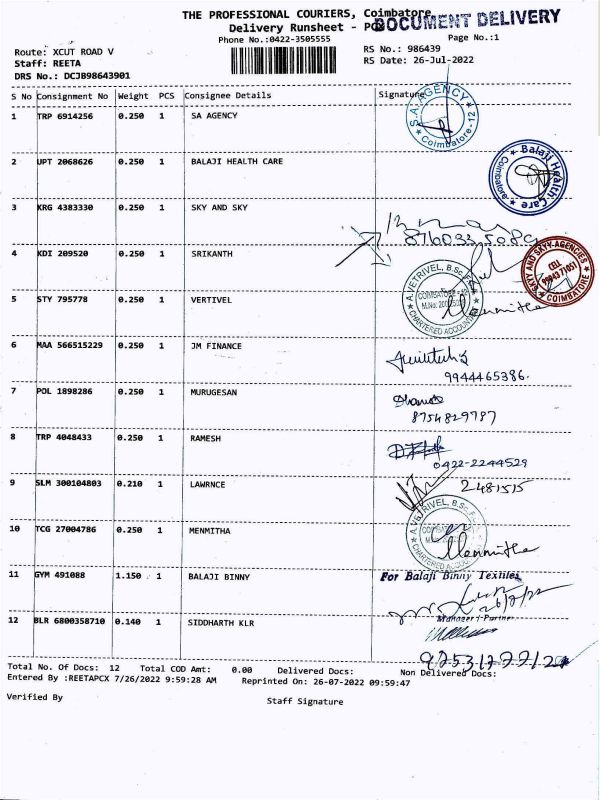 THE PROFESSIONAL COURIERS, Coimbatore
DOCUMENT DELIVERY
Delivery Runsheet -
Phone No.:0422-3505555
Page No.:1
Route: XCUT ROAD V
RS No.: 986439
Staff: REETA
RS Date: 26-Jul-2022
DRS No.: DCJB98643901
S No Consignment No Weight PCS Consignee Details Signature
1 TRP 6914256 0.250 1 SA AGENCY
S.A. AGENCY
Coimbatore-12
2 UPT 2068626 0.250 1 BALAJI HEALTH CARE
Balaji Health Care
Coimbatore
3 KRG 4383330 0.250 1 SKY AND SKY
4 KDI 209520 0.250 1 SRIKANTH
SKYY AND SKYY-AGENCIES
CELL
COIMBATORE
5 STY 795778 0.250 1 VERTIVEL
A.VETRIVEL, B.Sc.,
CHARTERED ACCOUNTANT
Menmitha
6 MAA 566515229 0.250 1 JM FINANCE
9944465386.
7 POL 1898286 0.250 1 MURUGESAN
8754829787
8 TRP 4048433 0.250 1 RAMESH
0422-2244529
9 SLM 300104803 0.210 1 LAWRNCE
2481515
10 TCG 27004786 0.250 1 MENMITHA
CHARTERED ACCOUNTANT
Menmitha
11 GYM 491088 1.150 1 BALAJI BINNY
For Balaji Binny Textiles
26/7/22
Manager / Partner
12 BLR 6800358710 0.140 1 SIDDHARTH KLR
Total No. Of Docs: 12 Total COD Amt: 0.00 Delivered Docs: Non Delivered Docs:
Entered By :REETAPCX 7/26/2022 9:59:28 AM Reprinted On: 26-07-2022 09:59:47
Verified By
Staff Signature